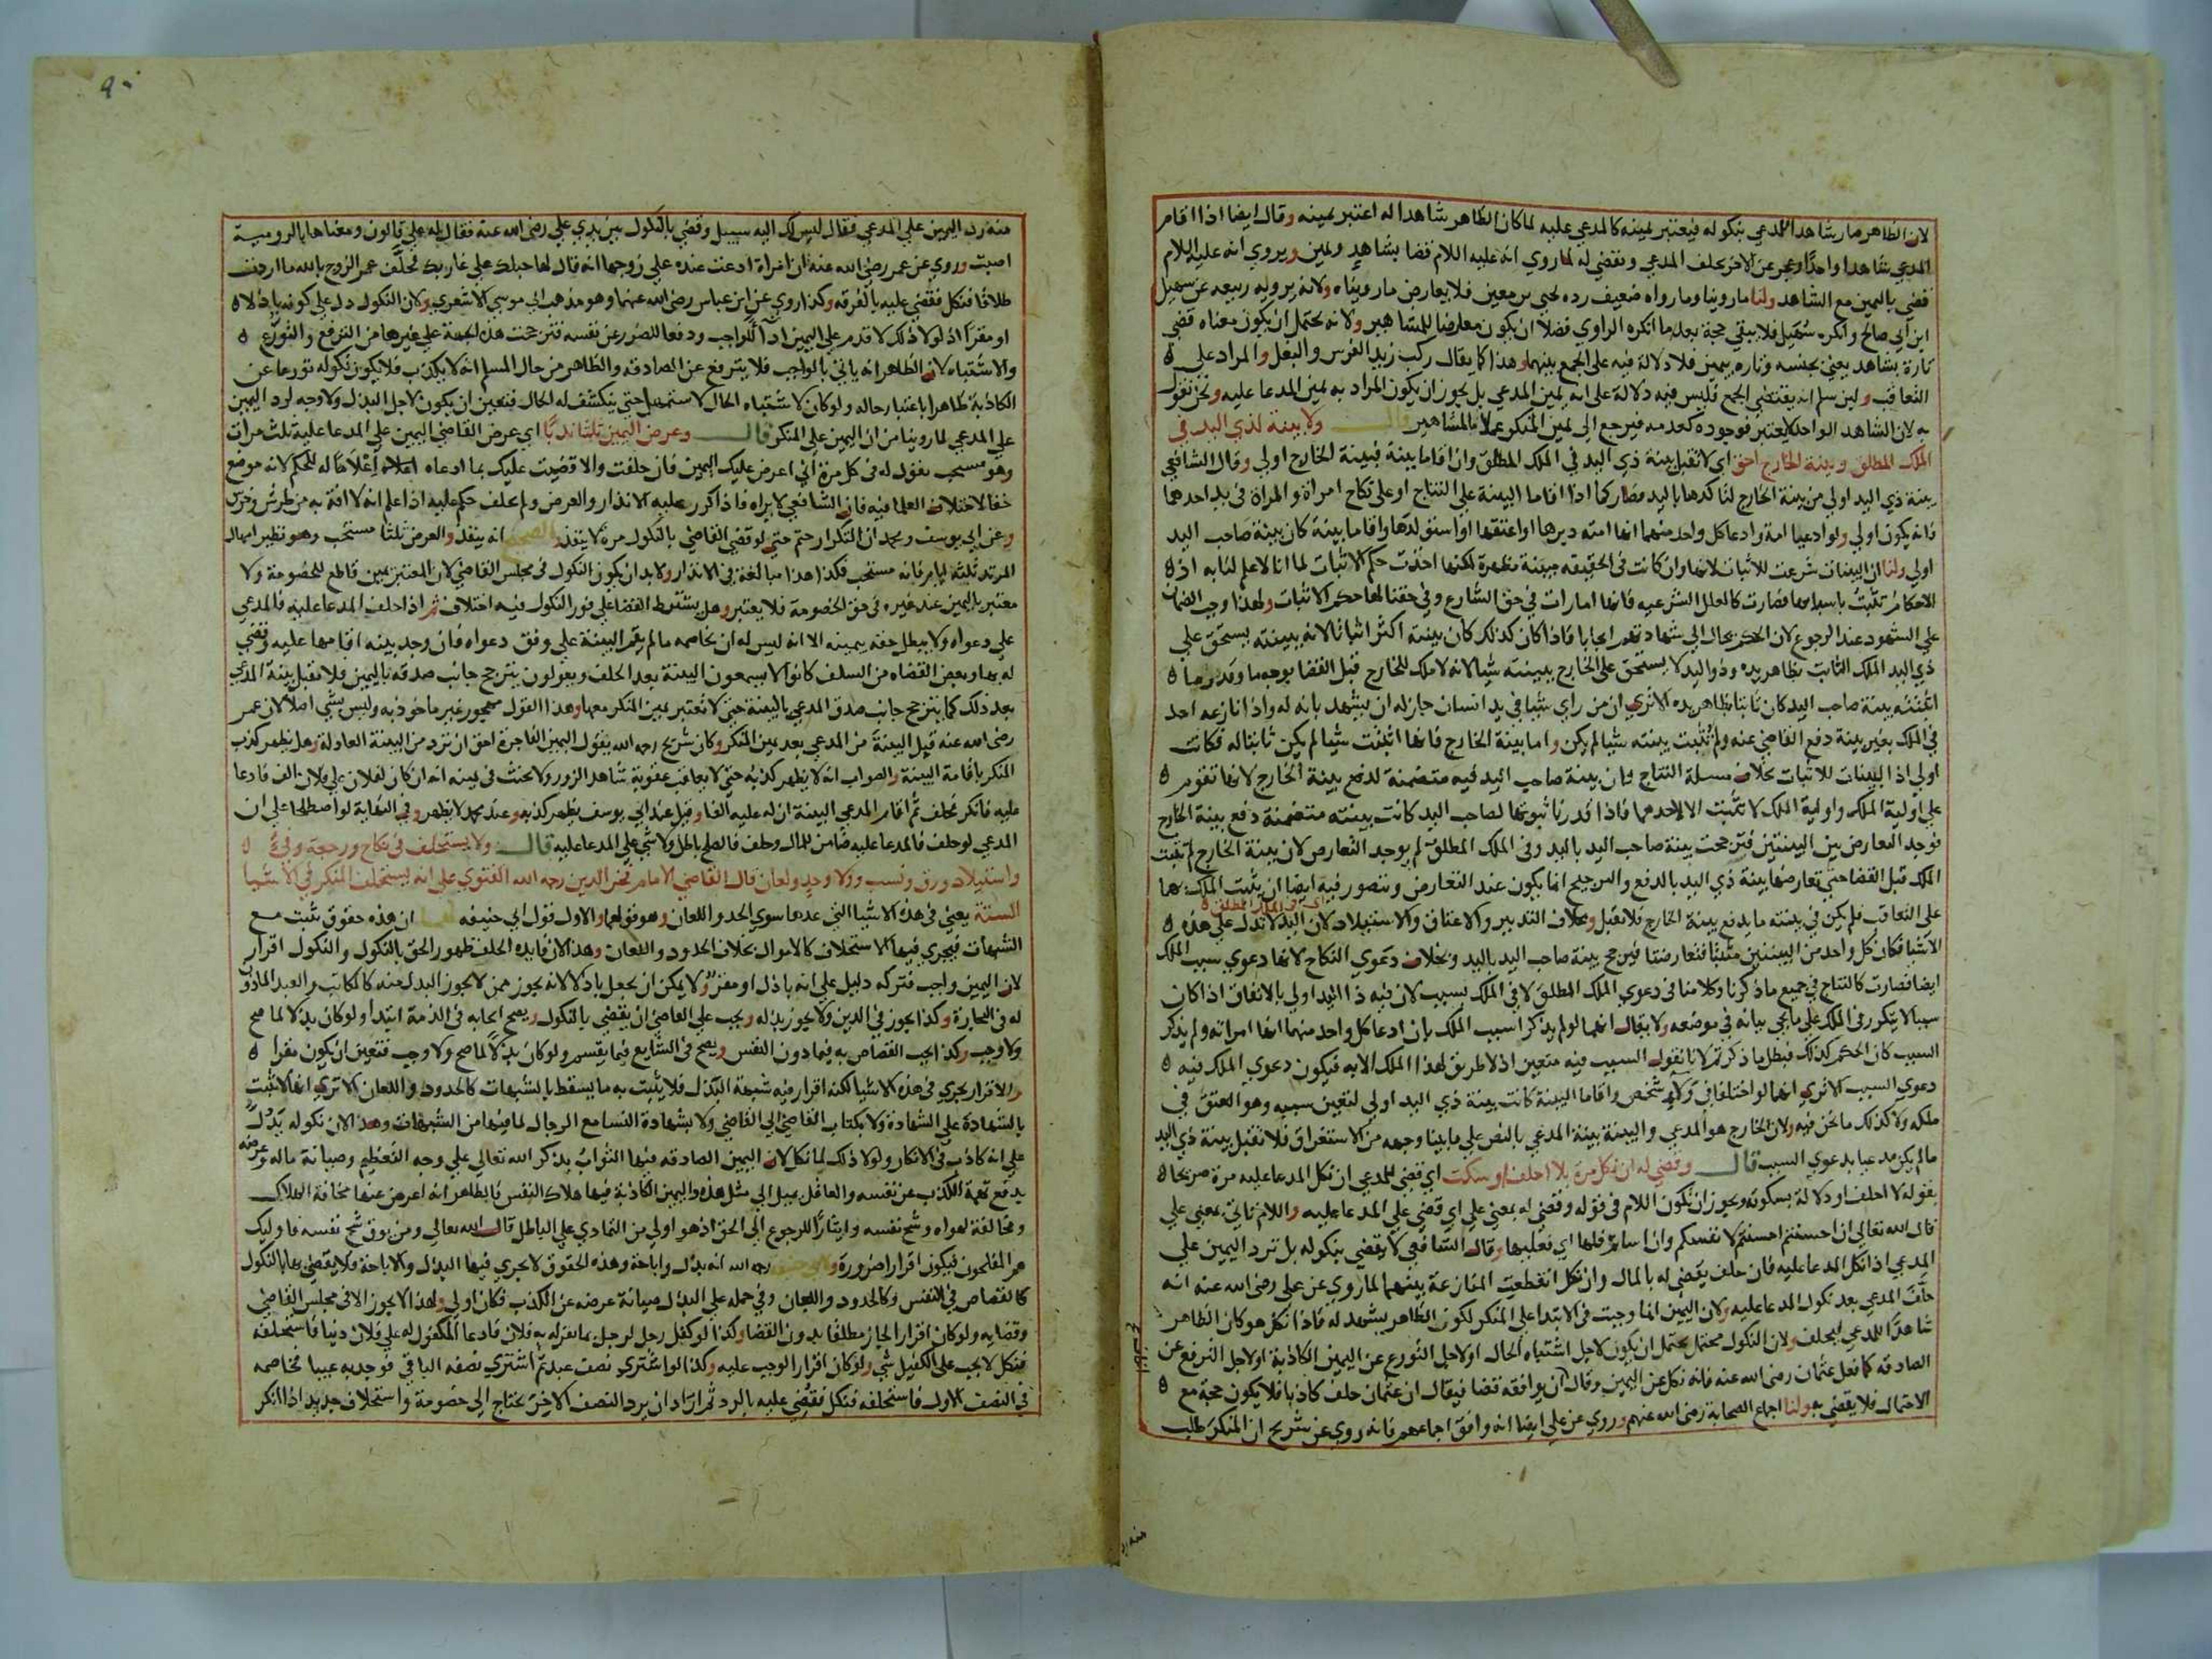 لان الظاهر صار شاهدا للمدعي بنكوله فيعتبر يمينه كالمدعي عليه لما كان الظاهر شاهدا له اعتبر يمينه وقال ايضا اذا اقام
المدعي شاهدا واحدا وعجز عن الاخر يحلف المدعي ويقضي له لما روي انه عليه السلام قضا بشاهد ويمين ويروي انه عليه السلام
قضي باليمين مع الشاهد ولنا ما روينا وما رواه ضعيف رده يحيى بن معين فلا يعارض ما رويناه ولانه يرويه ربيعه عن سهيل
ابن ابي صالح وانكره سهيل فلا يبقي حجة بعد ما انكره الراوي فضلا ان يكون معارضا للمشاهير ولانه يحتمل ان يكون معناه قضي
تارة بشاهد يعني بجنسه وتاره بيمين فلا دلالة فيه على الجمع بينهما وهذا كما يقال ركب زيد الفرس والبغل والمراد علي
التعاقب ولين سلم انه يقتضي الجمع فليس فيه دلالة على انه يمين المدعي بل يجوز ان يكون المراد به يمين المدعا عليه ونحن نقول
به لان الشاهد الواحد لا يعتبر فوجوده كعدمه فيرجع الى يمين المنكر عملا بالمشاهير قال ولا بينة لذي اليد في
الملك المطلق وبينة الخارج احق اي لا تقبل بينة ذي اليد في الملك المطلق وان اقاما بينة فبينة الخارج اولي وقال الشافعي
بينة ذي اليد اولي من بينة الخارج لتاكدها باليد فصار كما اذا اقاما البينة علي النتاج او على نكاح امراة والمراة في يد احدهما
فانه يكون اولي ولو ادعيا امة وادعا كل واحد منهما انها امته دبرها او اعتقها او استولدها واقاما بينة كان بينة صاحب اليد
اولي ولنا ان البينات شرعت للاثبات لانها وان كانت في الحقيقه مبينة مظهرة لكنها اخذت حكم الاثبات لما انا لا علم لنا به اذ
الاحكام تثبت باسبابها فصارت كالعلل الشرعيه فانها امارات في حق الشارع وفي حقنا لها حكم الاثبات ولهذا وجب الضمان
علي الشهود عند الرجوع لان الحكم يحال الي شهادتهم ايجابا فاذا كان كذلك كان بينة اكثر اثباتا لانه ببينته يستحق علي
ذي اليد الملك الثابت بظاهر يده وذو اليد لا يستحق على الخارج ببينته شيا لانه لا ملك للخارج قبل القضا بوجه ما وقدر ما
اثبتته بينة صاحب اليد كان ثابتا بظاهر يده الا تري ان من راي شيا في يد انسان جاز له ان يشهد بانه له واذا نازعه احد
في الملك بغير بينة دفع القاضي عنه ولم تثبت بينته شيا لم يكن واما بينة الخارج فانها اثبتت شيا لم يكن ثابتا له فكانت
اولي اذ البينات للاثبات بخلاف مسيلة النتاج فان بينة صاحب اليد فيه متضمنة لدفع بينة الخارج لانها تقوم
علي اولية الملك واولية الملك لا تثبت الا لاحدهما فاذا قدرنا ثبوتها لصاحب اليد كانت بينته متضمنة دفع بينة الخارج
فوجد التعارض بين البينتين فترجحت بينة صاحب اليد باليد وفي الملك المطلق لم يوجد التعارض لان بينة الخارج لم تثبت
الملك قبل القضا حتي تعارضها بينة ذي اليد بالدفع والترجيح انما يكون عند التعارض ونتصور فيه ايضا ان يثبت الملك بهما
اي في الملك المطلق
علي التعاقب فلم يكن في بينته ما يدفع بينة الخارج فلا تقبل وبخلاف التدبير والاعتاق والاستيلاد لان اليد لا تدل علي هذه
الاشيا فكان كل واحد من البينتين مثبتا فتعارضتا فترجح بينة صاحب اليد باليد وبخلاف دعوي النكاح لانها دعوي سبب الملك
ايضا فصارت كالنتاج في جميع ما ذكرنا وكلامنا في دعوي الملك المطلق لا في الملك بسبب لان فيه ذا اليد اولي بالاتفاق اذا كان
سببا لا يتكرر في الملك علي ما يجي بيانه في موضعه ولا يقال انهما لو لم يذكرا سبب الملك بان ادعا كل واحد منهما انها امراته ولم يذكر
السبب كان الحكم كذلك فبطل ما ذكرتم لانا نقول السبب فيه متعين اذ لا طريق لهذا الملك الا به فيكون دعوي الملك فيه
دعوي السبب الا تري انهما لو اختلفا في ولاء شخص واقاما البينة كانت بينة ذي اليد اولي لتعين سببه وهو العتق في
ملكه ولا كذلك ما نحن فيه ولان الخارج هو المدعي والبينة بينة المدعي بالنص علي ما بينا وجهه من الاستغراق فلا تقبل بينة ذي اليد
ما لم يكن مدعيا بدعوي السبب قال وقضي له ان نكل مرة بلا احلف او سكت اي قضي للمدعي ان نكل المدعا عليه مرة صريحا
بقوله لا احلف او دلالة بسكوته ويجوز ان يكون اللام في قوله وقضي له بمعني علي اي قضي علي المدعا عليه واللام تاتي بمعني علي
قال الله تعالي ان احسنتم احسنتم لانفسكم وان اساتم فلها اي فعليها وقال الشافعي لا يقضي بنكوله بل ترد اليمين علي
المدعي اذا نكل المدعا عليه فان حلف يقضي له بالمال وان نكل انقطعت المنازعة بينهما لما روي عن علي رضي الله عنه انه
حلف المدعي بعد نكول المدعا عليه ولان اليمين انما وجبت في الابتدا علي المنكر لكون الظاهر يشهد له فاذا نكل هو كان الظاهر
شاهدا للمدعي فيحلف ولان النكول محتمل يحتمل ان يكون لاجل اشتباه الحال او لاجل التورع عن اليمين الكاذبة او لاجل الترفع عن
الصادقه كما فعل عثمان رضي الله عنه فانه نكل عن اليمين وقال ان يوافقه قضا فيقال ان عثمان حلف كاذبا فلا يكون حجة مع
الاحتمال فلا يقضي به ولنا اجماع الصحابة رضي الله عنهم وروي عن علي ايضا انه وافق اجماعهم فانه روي عن شريح ان المنكر طلب
منه رد
٩٠
منه رد اليمين علي المدعي فقال ليس لك اليه سبيل وقضي بالنكول بين يدي علي رضي الله عنه فقال له علي قالون ومعناها بالرومية
اصبت وروي عن عمر رضي الله عنه ان امراة ادعت عنده علي زوجها انه قال لها حبلك علي غاربك فحلف عمر الزوج بالله ما اردت
طلاقا فنكل فقضي عليه بالفرقه وكذا روي عن ابن عباس رضي الله عنهما وهو مذهب ابي موسي الاشعري ولان النكول دل علي كونه باذلا
او مقرا اذ لولا ذلك لاقدم علي اليمين اداً للواجب ودفعا للضرر عن نفسه فترجحت هذه الجهة علي غيرها من الترفع والتورع
والاشتباه لان الظاهر انه ياتي بالواجب فلا يترفع عن الصادقه والظاهر من حال المسلم انه لا يكذب فلا يكون نكوله تورعا عن
الكاذبة ظاهرا باعتبار حاله ولو كان لاشتباه الحال لاستمهل حتي ينكشف له الحال فتعين ان يكون لاجل البذل ولا وجه لرد اليمين
علي المدعي لما روينا من ان اليمين علي المنكر قال وعرض اليمين ثلثا ندبا اي عرض القاضي اليمين علي المدعا عليه ثلث مرات
وهو مستحب يقول له في كل مرة اني اعرض عليك اليمين فان حلفت والا قضيت عليك بما ادعاه اعلاما له للحكم لانه موضع
خفا لاختلاف العلما فيه فان الشافعي لا يراه فاذا كرر عليه الانذار والعرض ولم يحلف حكم عليه اذا علم انه لا افة به من طرش وخرس
وعن ابي يوسف ومحمد ان التكرار حتم حتي لو قضي القاضي بالنكول مرة لا ينفذ والصحيح انه ينفذ والعرض ثلثا مستحب وهو نظير امهال
المرتد ثلثة ايام فانه مستحب فكذا هذا مبالغة في الانذار ولا بد ان يكون النكول في مجلس القاضي لان المعتبر يمين قاطع للخصومة ولا
معتبر باليمين عند غيره في حق الخصومة فلا يعتبر وهل يشترط القضا علي فور النكول فيه اختلاف ثم اذا حلف المدعا عليه فالمدعي
علي دعواه ولا يبطل حقه بيمينه الا انه ليس له ان يخاصمه ما لم يقم البينة علي وفق دعواه فان وجد بينه اقامها عليه وقضي
له بها وبعض القضاه من السلف كانوا لا يسمعون البينة بعد الحلف ويقولون يترجح جانب صدقه باليمين فلا تقبل بينة المدعي
بعد ذلك كما يترجح جانب صدق المدعي بالبينة حتي لا تعتبر يمين المنكر معها وهذا القول مهجور غير ماخوذ به وليس بشي اصلا لان عمر
رضي الله عنه قبل البينة من المدعي بعد يمين المنكر وكان شريح رحمه الله يقول اليمين الفاجرة احق ان ترد من البينة العادلة وهل يظهر كذب
المنكر باقامة البينة والصواب انه لا يظهر كذبه حتي لا يعاقب عقوبة شاهد الزور ولا يحنث في يمينه انه ان كان لفلان علي فلان الف فادعا
عليه فانكر فحلف ثم اقام المدعي البينة ان له عليه الفا وقيل عند ابي يوسف يظهر كذبه وعند محمد لا يظهر وفي النهاية لو اصطلحا علي ان
المدعي لو حلف فالمدعا عليه ضامن للمال وحلف فالصلح باطل ولا شي علي المدعا عليه قال ولا يستحلف في نكاح ورجعة وفيء
واستيلاد ورق ونسب وولا وحد ولعان قال القاضي الامام فخر الدين رحمه الله الفتوي علي انه يستحلف المنكر في الاشيا
الستة يعني في هذه الاشيا التي عدها سوي الحد واللعان وهو قولهما والاول قول ابي حنيفه لهما ان هذه حقوق تثبت مع
الشبهات فيجري فيها الاستحلاف كالاموال بخلاف الحدود واللعان وهذا لان فايدة الحلف ظهور الحق بالنكول والنكول اقرار
لان اليمين واجب فتركه دليل علي انه باذل او مقر ولا يمكن ان يجعل باذلا لانه يجوز ممن لا يجوز البدل منه كالمكاتب والعبد الماذون
له في التجارة وكذا يجوز في الدين ولا يجوز بذله ويجب علي القاضي ان يقضي بالنكول ويصح ايجابه في الذمة ابتدا ولو كان بذلا لما صح
ولا وجب وكذا يجب القصاص به فيما دون النفس ويصح في الشايع فيما يقسم ولو كان بذلا لما صح ولا وجب فتعين ان يكون مقرا
والاقرار يجري في هذه الاشيا لكنه اقرار فيه شبهة البذل فلا يثبت به ما يسقط بالشبهات كالحدود واللعان الا تري انها لا تثبت
بالشهادة علي الشهادة ولا بكتاب القاضي الي القاضي ولا بشهادة النسا مع الرجال لما فيها من الشبهات وهذا لان نكوله يدل
علي انه كاذب في الانكار ولولا ذلك لما نكل لان اليمين الصادقه فيها الثواب بذكر الله تعالي علي وجه التعظيم وصيانة ماله وعرضه
يدفع تهمة الكذب عن نفسه والعاقل يميل الي مثل هذه واليمين الكاذبة فيها هلاك النفس فالظاهر انه اعرض عنها مخافة الهلاك
ومخالفة لهواه وشح نفسه وايثارا للرجوع الي الحق اذ هو اولي من التمادي علي الباطل قال الله تعالي ومن يوق شح نفسه فاوليك
هم المفلحون فيكون اقرارا ضرورة ولابي حنيفة رحمه الله انه بذل واباحة وهذه الحقوق لا يجري فيها البذل والاباحة فلا يقضي بها بالنكول
كالقصاص في النفس وكالحدود واللعان وفي حمله علي البذل صيانة عرضه عن الكذب فكان اولي ولهذا لا يجوز الا في مجلس القاضي
وقضايه ولو كان اقرارا لجاز مطلقا بدون القضا وكذا لو كفل رجل لرجل بما يقر له به فلان فادعا المكفول له علي فلان دينا فاستحلفه
فنكل لا يجب علي الكفيل شي ولو كان اقرارا لوجب عليه وكذا لو اشتري نصف عبد ثم اشتري نصفه الباقي فوجد به عيبا فخاصمه
في النصف الاول فاستحلفه فنكل فقضي عليه بالرد ثم اراد ان يرد النصف الاخر يحتاج الي خصومة واستحلاف جديد اذا انكر